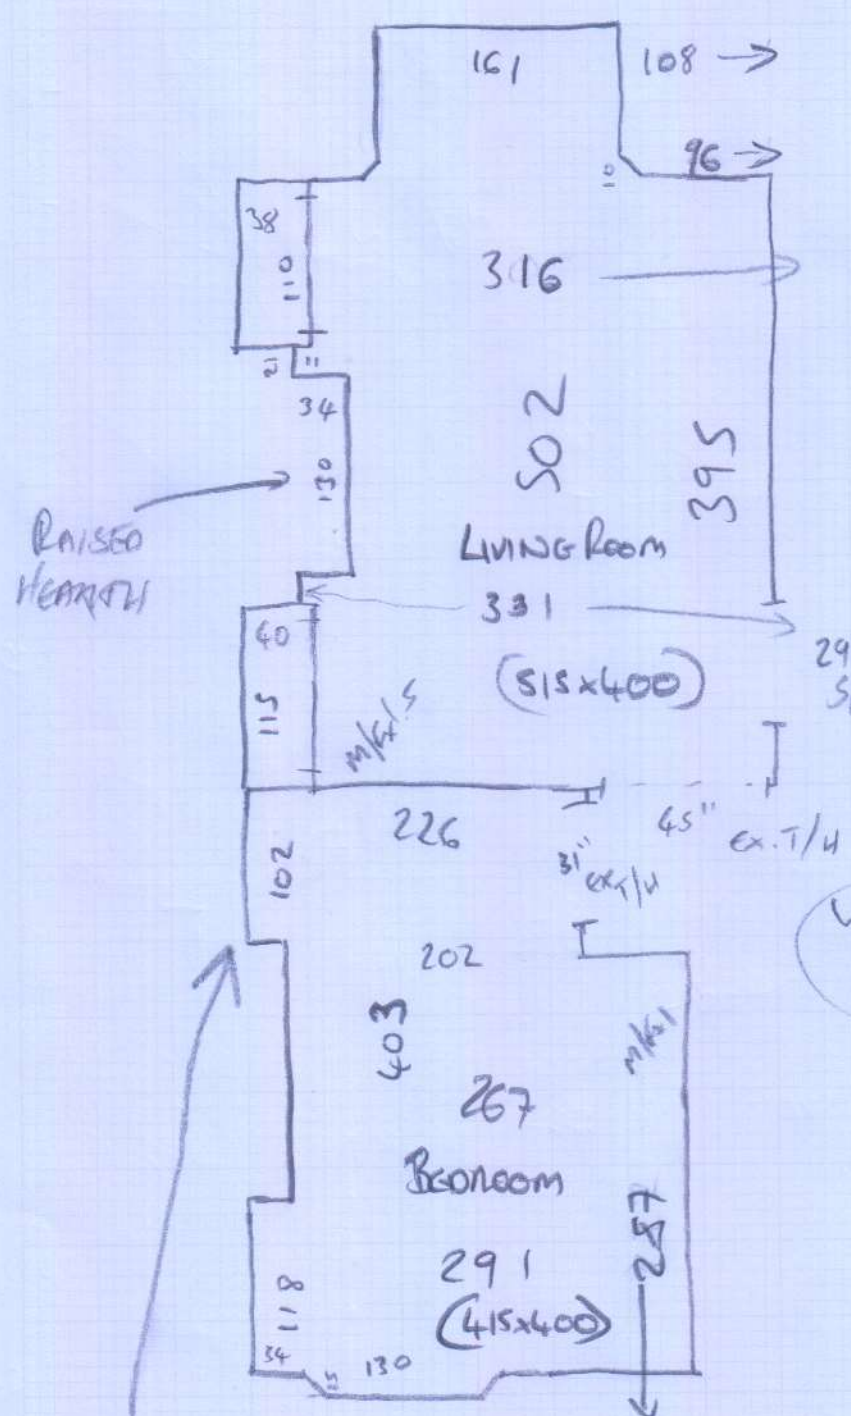 161
108 →
96 →
10
38
110
316
21
11
34
130
502
395
RAISED
HEARTH
LIVING ROOM
331
40
115
(515x400)
29
226
45"
EX. T/H
31"
EX T/H
102
202
403
267
BEDROOM
287
291
118
(415x400)
34
130